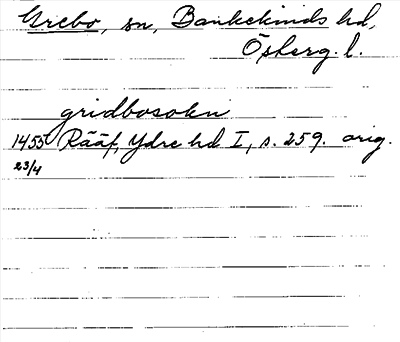 Grebo, sn, Bankekinds hd,
Österg. l.
gridbosokn
1455 Rääf, Ydre hd I, s. 259. orig.
23/4